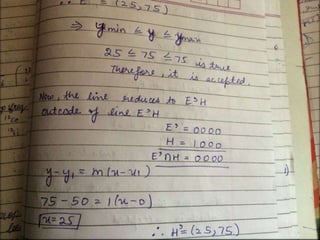 ∴ E' = (25, 75)
⇒ ymin ≤ y ≤ ymax
25 ≤ 75 ≤ 75 is true
Therefore, it is accepted.
Now, the line reduces to E'H
outcode of line E'H
E' = 0000
H = 1000
E'∩H = 0000
y-y₁ = m(x-x₁)
75-50 = 1(x-0)
x=25
∴ H' = (25, 75)